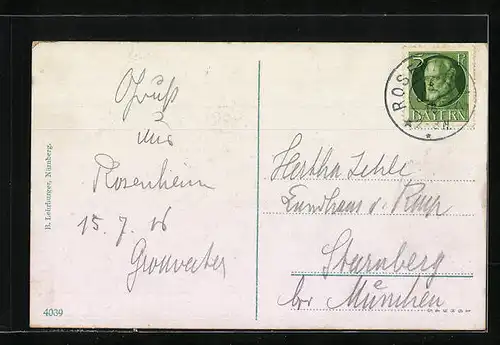 Gruß
aus
Rosenheim
15. 7. 16
Grossvater
B. Lehrburger, Nürnberg.
4039
5 PF
BAYERN
ROS
Hertha Zehle
Landhaus v.
Starnberg
bei München